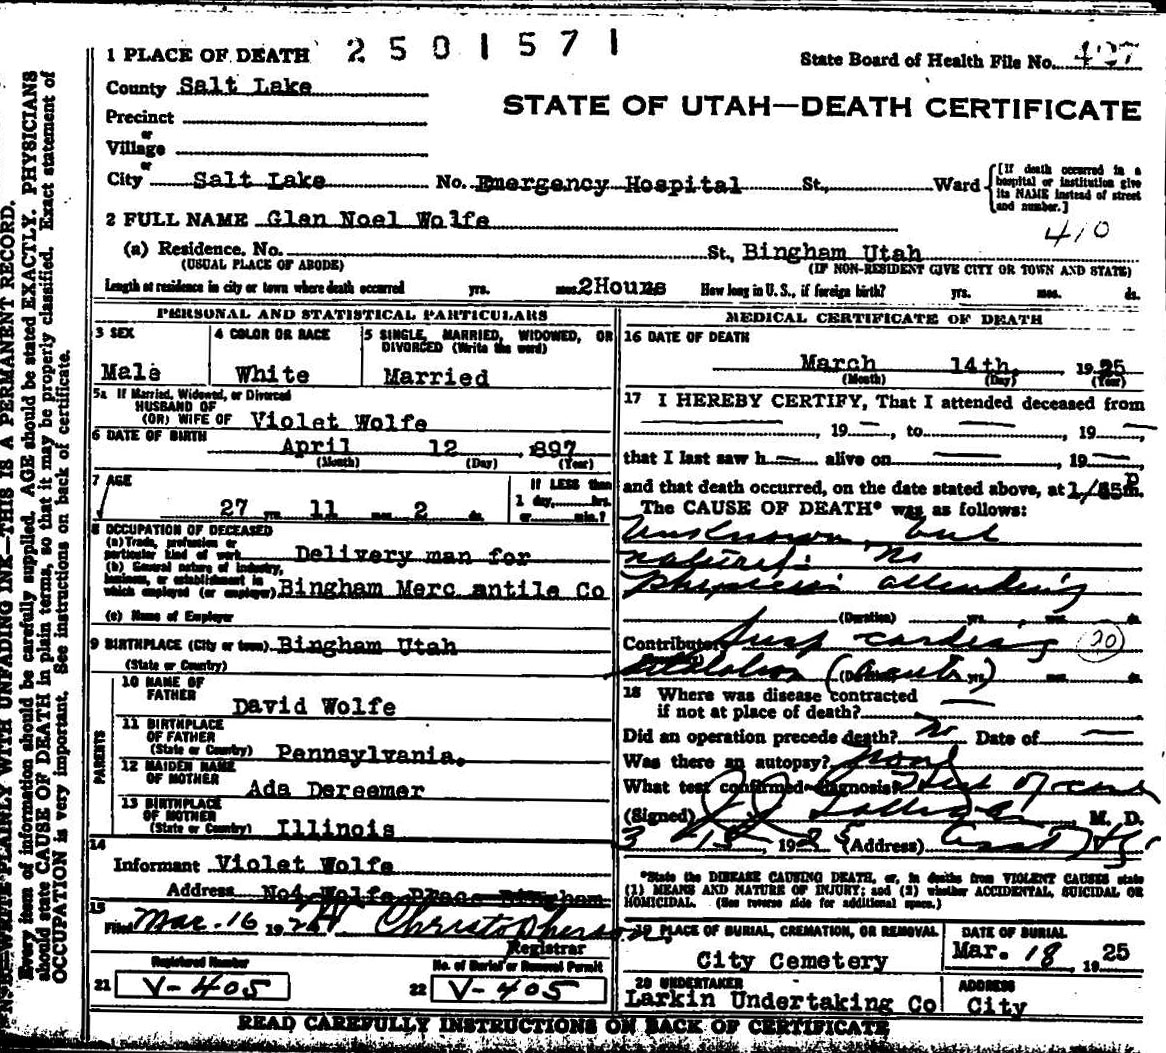 1 PLACE OF DEATH 2501571
State Board of Health File No.
County Salt Lake
STATE OF UTAH—DEATH CERTIFICATE
Precinct
or
Village
or
City Salt Lake No. Emergency Hospital St., Ward
[If death occurred in a hospital or institution give its NAME instead of street and number.]
2 FULL NAME Glen Noel Wolfe
410
(a) Residence. No. St., Bingham Utah
(USUAL PLACE OF ABODE) (IF NON-RESIDENT GIVE CITY OR TOWN AND STATE)
Length of residence in city or town where death occurred yrs. mos. 2Hours How long in U. S., if foreign birth? yrs. mos. ds.
PERSONAL AND STATISTICAL PARTICULARS
3 SEX
Male
4 COLOR OR RACE
White
5 SINGLE, MARRIED, WIDOWED, OR
DIVORCED (Write the word)
Married
5a If Married, Widowed, or Divorced
HUSBAND OF
(OR) WIFE OF Violet Wolfe
6 DATE OF BIRTH
April 12 , 1897
(Month) (Day) (Year)
7 AGE
27 yrs. 11 mos. 2 ds.
If LESS than
1 day, hrs.
or min.?
8 OCCUPATION OF DECEASED
(a) Trade, profession or
particular kind of work Delivery man for
(b) General nature of industry,
business, or establishment in
which employed (or employer) Bingham Merc antile Co
(c) Name of Employer
9 BIRTHPLACE (City or town) Bingham Utah
(State or Country)
PARENTS
10 NAME OF
FATHER
David Wolfe
11 BIRTHPLACE
OF FATHER
(State or Country) Pennsylvania.
12 MAIDEN NAME
OF MOTHER
Ada Dereemer
13 BIRTHPLACE
OF MOTHER
(State or Country) Illinois
14
Informant Violet Wolfe
Address No4 Wolfe Place Bingham
15
Filed Mar. 16 192 Christopherson
Registrar
Registered Number
21 V-405
No. of Burial or Removal Permit
22 V-405
MEDICAL CERTIFICATE OF DEATH
16 DATE OF DEATH
March 14th, , 1925
(Month) (Day) (Year)
17 I HEREBY CERTIFY, That I attended deceased from
, 19 , to , 19
that I last saw h alive on , 19
and that death occurred, on the date stated above, at m.
The CAUSE OF DEATH* was as follows:
Unknown, but
natural: No
physician attending
(Duration) yrs. mos. ds.
Contributory Susp cardiac 20
dilatation (acute)
18 Where was disease contracted
if not at place of death?
Did an operation precede death? no Date of
Was there an autopsy?
What test confirmed diagnosis? Hist of case
(Signed) M. D.
3 15, 1925 (Address)
*State the DISEASE CAUSING DEATH, or, in deaths from VIOLENT CAUSES state
(1) MEANS AND NATURE OF INJURY; and (2) whether ACCIDENTAL, SUICIDAL OR
HOMICIDAL. (See reverse side for additional space.)
19 PLACE OF BURIAL, CREMATION, OR REMOVAL
City Cemetery
DATE OF BURIAL
Mar. 18 , 1925
20 UNDERTAKER
Larkin Undertaking Co
ADDRESS
City
READ CAREFULLY INSTRUCTIONS ON BACK OF CERTIFICATE
N. B.—WRITE PLAINLY WITH UNFADING INK—THIS IS A PERMANENT RECORD.
Every item of information should be carefully supplied. AGE should be stated EXACTLY. PHYSICIANS
should state CAUSE OF DEATH in plain terms, so that it may be properly classified. Exact statement of
OCCUPATION is very important. See instructions on back of certificate.